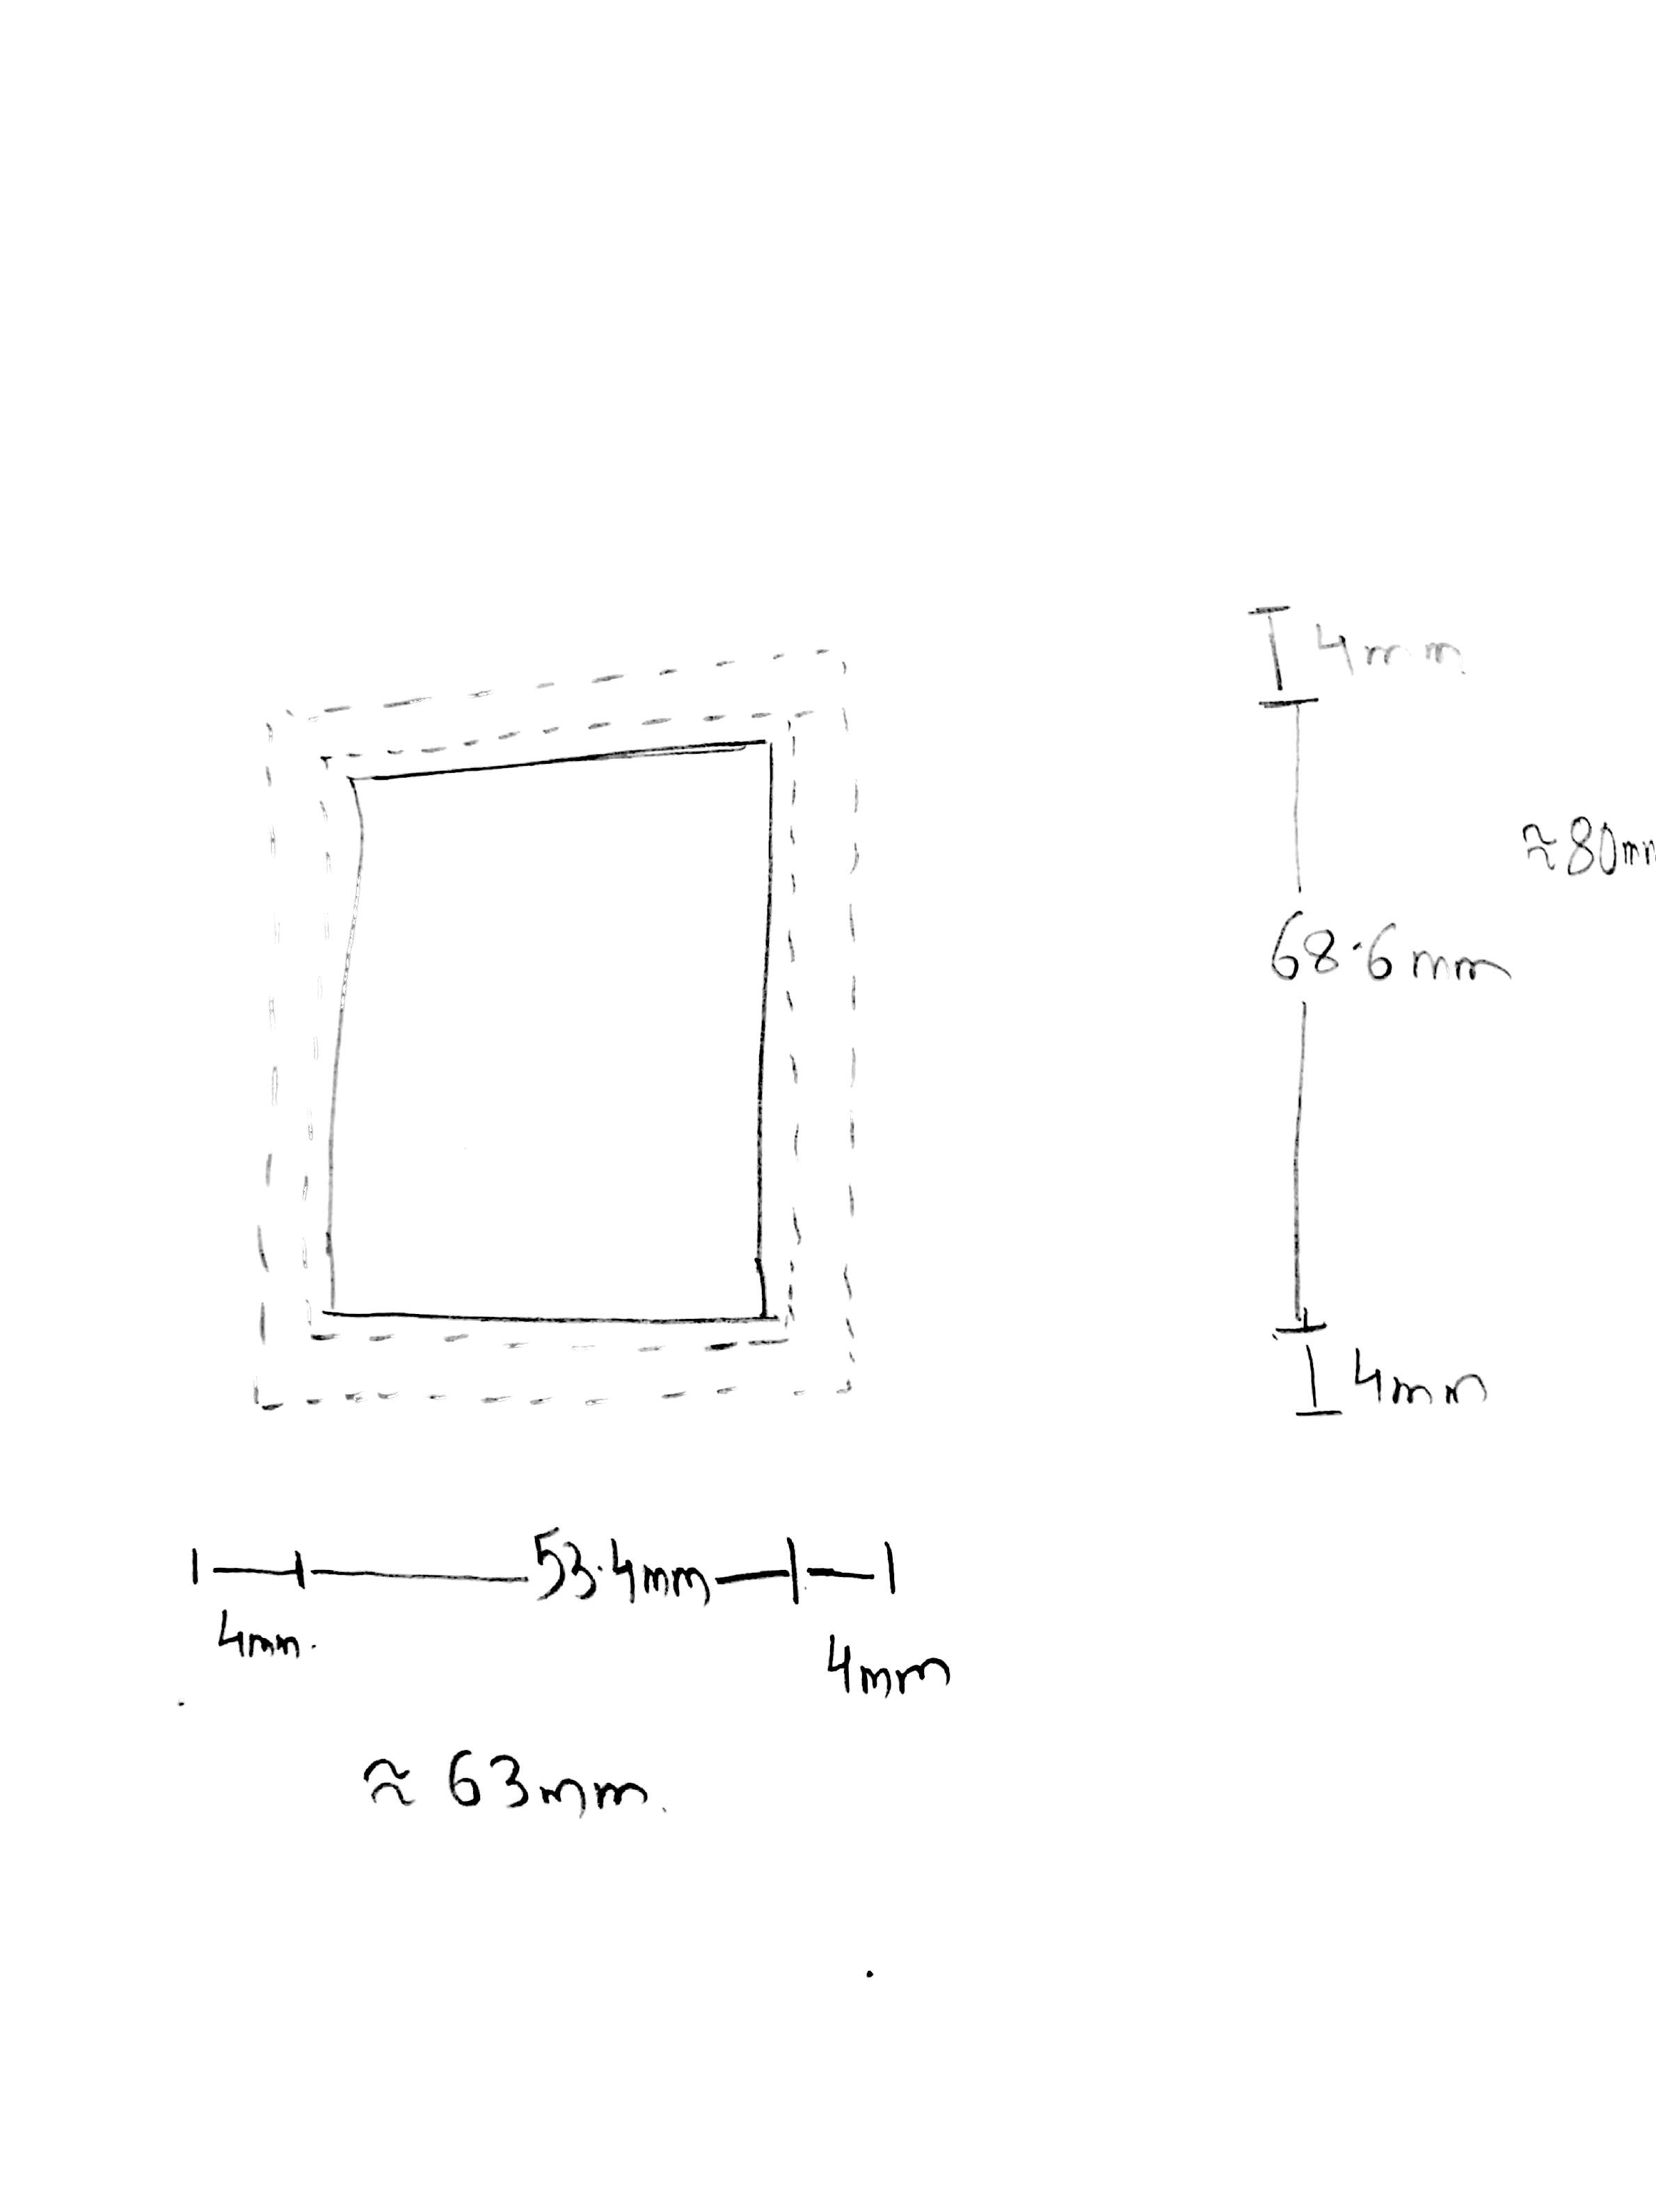 4mm
≈80mm
68.6mm
4mm
53.4mm
4mm.
4mm
≈ 63mm.